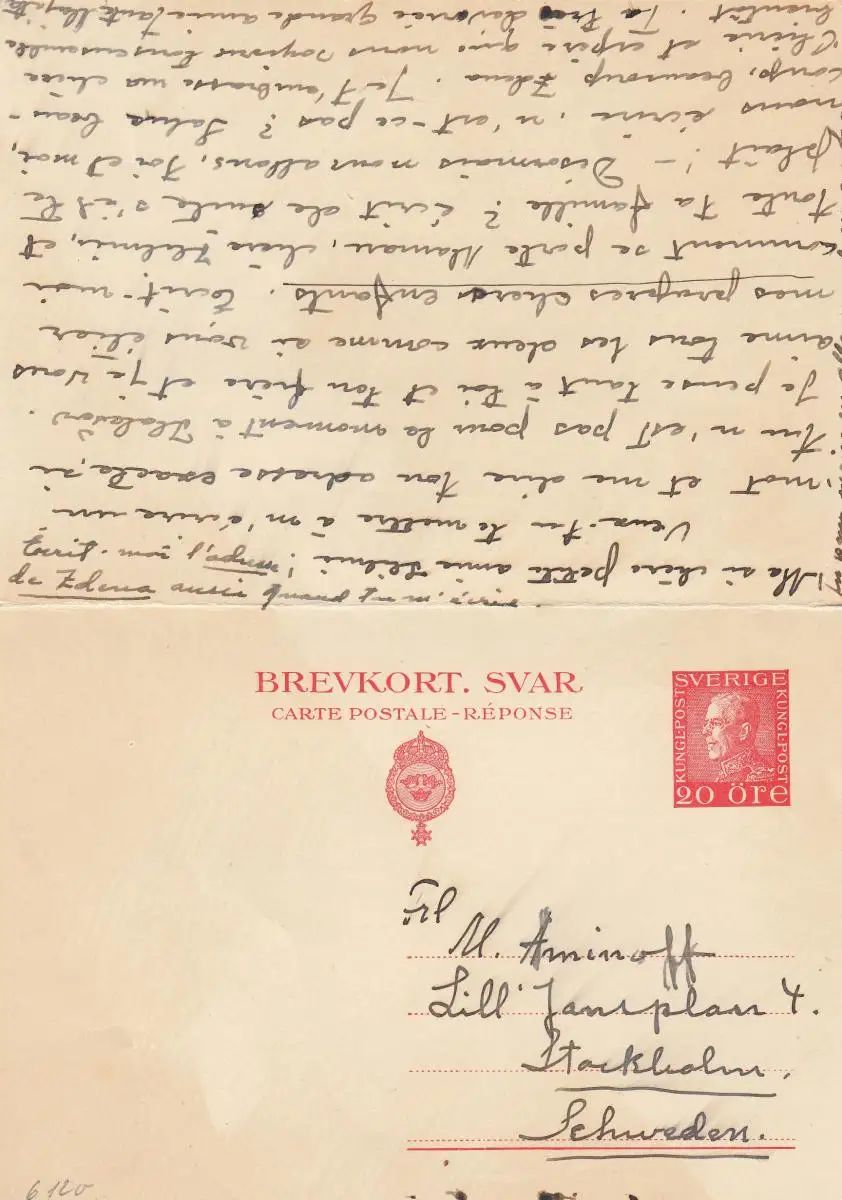 Ecrif-moi l'adresse
de Zdena aussi quand tu m'écris.
Ma si chère petite amie Helmi!
Veux-tu te mettre à m'écrire un
mot et me dire ton adresse exacte, si
tu n'est pas pour le moment à
Je pense tant à toi et ton frère et je vous
aime tous les deux comme si vous étiez
mes propres chers enfants. Ecrit-moi
comment se porte Maman, chère Helmi, et
toute ta famille? écrit de suite s'il te
plaît! – Désormais nous allons, toi et moi,
nous écrire, n'est-ce pas? Salue beau-
coup, beaucoup Zdena. Je t'embrasse ma chère
Chérie et espère que nous soyons tous ensemble
bientôt. Ta très dévouée grande amie, tante
BREVKORT. SVAR
CARTE POSTALE-RÉPONSE
SVERIGE
KUNGL·POST
KUNGL·POST
20 öre
Frl
M. Aminoff
Lill' Jansplan 4.
Stockholm.
Schweden.
6120